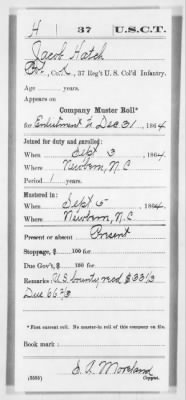 H 37 U.S.C.T.
Jacob Hatch
Co. K, 37 Reg't U. S. Col'd Infantry.
Age years.
Appears on
Company Muster Roll*
for Enlistment to Dec 31, 1864.
Joined for duty and enrolled:
When Sept 3, 1864.
Where Newbern, N.C
Period 1 years.
Mustered in:
When Sept 5, 1864.
Where Newbern, N.C
Present or absent Present
Stoppage, $ 100 for
Due Gov't, $ 100 for
Remarks: U.S. bounty recd $33 1/3
Due 66 2/3
*First current roll. No muster-in roll of this company on file.
Book mark:
S. A. Moreland
Copyist.